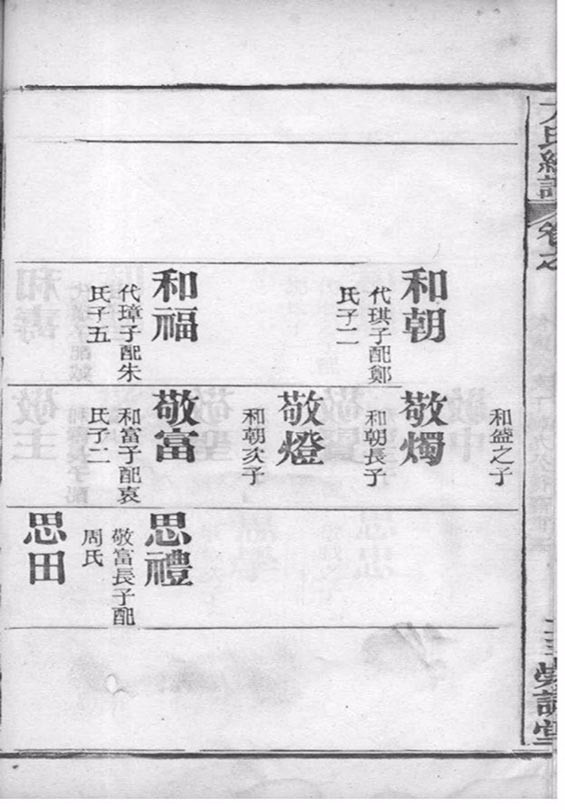 和朝
代琪子配鄭
氏子二
和福
代璋子配朱
氏子五
和盛之子
敬燭
和朝長子
敬燈
和朝次子
敬富
和富子配袁
氏子二
思禮
敬富長子配
周氏
思田
氏總譜
卷之